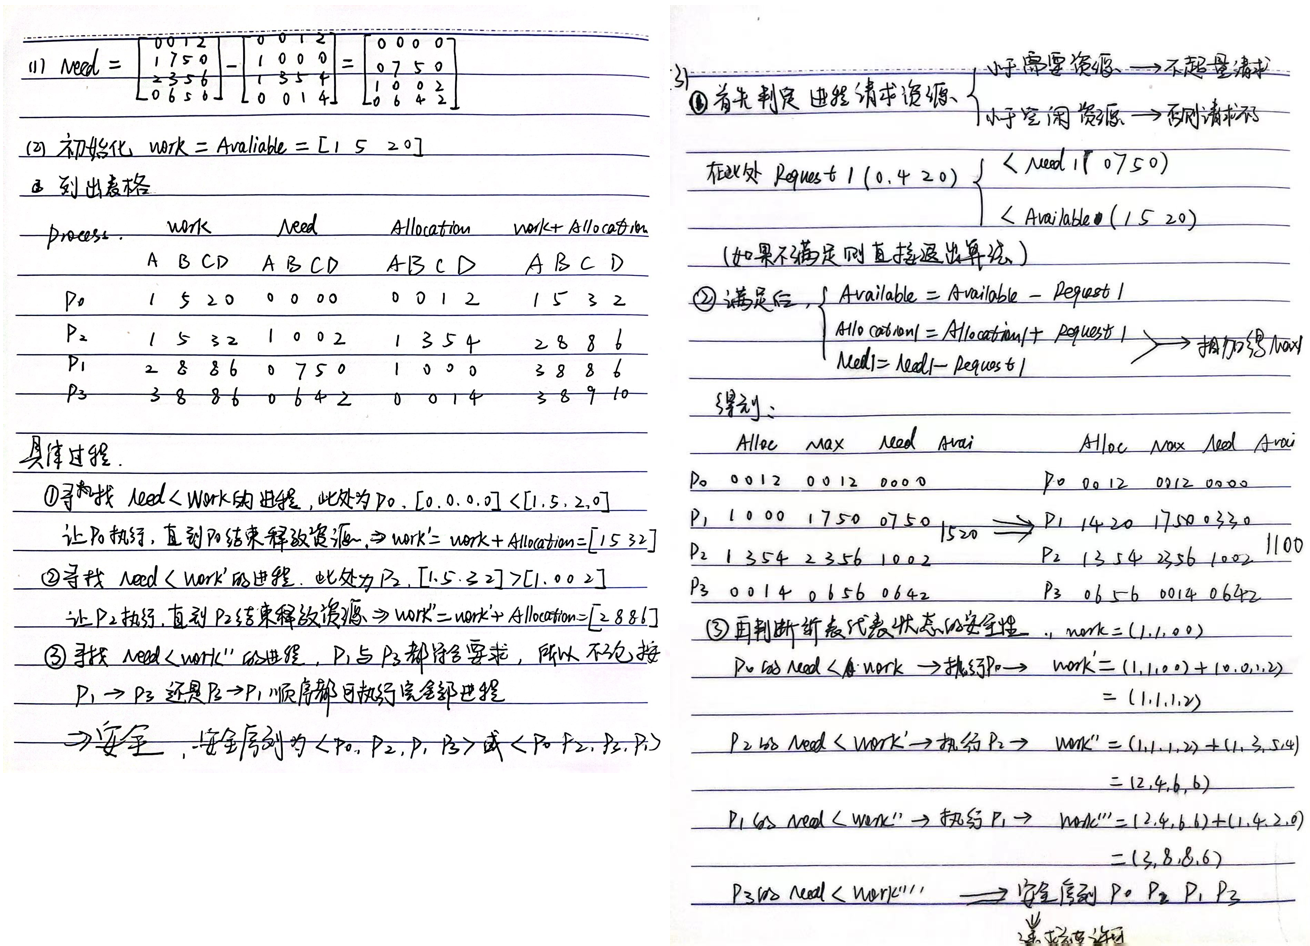 (1) Need = [0 0 1 2 / 1 7 5 0 / 2 3 5 6 / 0 6 5 6] - [0 0 1 2 / 1 0 0 0 / 1 3 5 4 / 0 0 1 4] = [0 0 0 0 / 0 7 5 0 / 1 0 0 2 / 0 6 4 2]
(2) 初始化 work = Avaliable = [1 5 2 0]
列出表格
process. work Need Allocation work+Allocation
A B C D A B C D A B C D A B C D
P0 1 5 2 0 0 0 0 0 0 0 1 2 1 5 3 2
P2 1 5 3 2 1 0 0 2 1 3 5 4 2 8 8 6
P1 2 8 8 6 0 7 5 0 1 0 0 0 3 8 8 6
P3 3 8 8 6 0 6 4 2 0 0 1 4 3 8 9 10
具体过程.
①寻找 Need<Work的进程,此处为P0. [0.0.0.0]<[1.5.2.0]
让P0执行,直到P0结束释放资源 ⇒ work'= work+Allocation=[1 5 3 2]
②寻找 Need<work'的进程. 此处为P2. [1.5.3 2]>[1.0 0 2]
让P2执行,直到P2结束释放资源 ⇒ work''=work'+Allocation=[2 8 8 6]
③寻找 Need<work''的进程, P1与P3都符合要求, 所以不论按
P1 → P3 还是P3→P1顺序都可执行完全部进程
⇒安全, 安全序列为<P0, P2, P1 P3>或<P0 P2, P3, P1>
3)
①首先判定 进程请求资源 { 小于需要资源 → 不超量请求
小于空闲资源 → 否则请求不
在此处 Request 1 (0.4 2 0) { < Need 1( 0 7 5 0)
< Available (1 5 2 0)
(如果不满足则直接退出算法)
②满足后, { Available = Available - Request 1
Allocation1 = Allocation1 + Request 1
Need1= Need1- Request1 → 相加得Max1
得到:
Alloc Max Need Avai Alloc Max Need Avai
P0 0 0 1 2 0 0 1 2 0 0 0 0 P0 0 0 1 2 0 0 1 2 0 0 0 0
P1 1 0 0 0 1 7 5 0 0 7 5 0 1 5 2 0 ⇒ P1 1 4 2 0 1 7 5 0 0 3 3 0 1 1 0 0
P2 1 3 5 4 2 3 5 6 1 0 0 2 P2 1 3 5 4 2 3 5 6 1 0 0 2
P3 0 0 1 4 0 6 5 6 0 6 4 2 P3 0 6 5 6 0 0 1 4 0 6 4 2
③再判断新表代表状态的安全性, work=(1.1.0 0)
P0的Need< work → 执行P0→ work'=(1,1,0 0)+(0.0,1.2)
= (1.1.1.2)
P2的 Need < work'→执行P2→ work''=(1.1.1.2)+(1,3,5,4)
= (2.4,6,6)
P1的 Need < work''→ 执行P1→ work'''=(2.4.6 6)+(1.4.2.0)
= (3,8,8,6)
P3的 Need < work''' ⇒ 安全序列 P0 P2 P1 P3